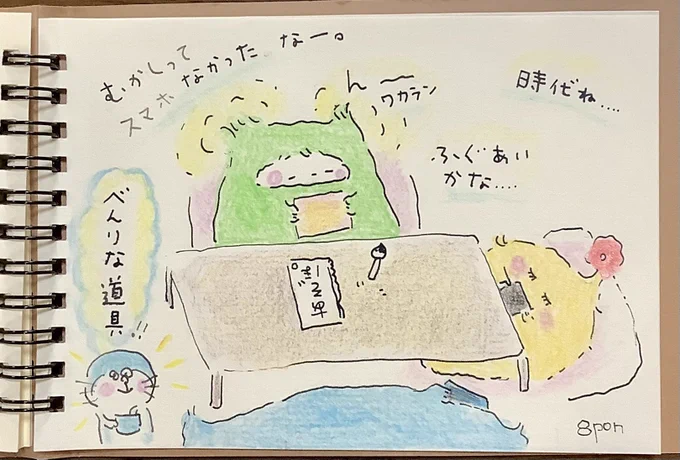 むかしって
スマホ なかった なー。
んー
ワカラン
時代ね....
ふぐあい
かな....
べんりな道具!!
8pon